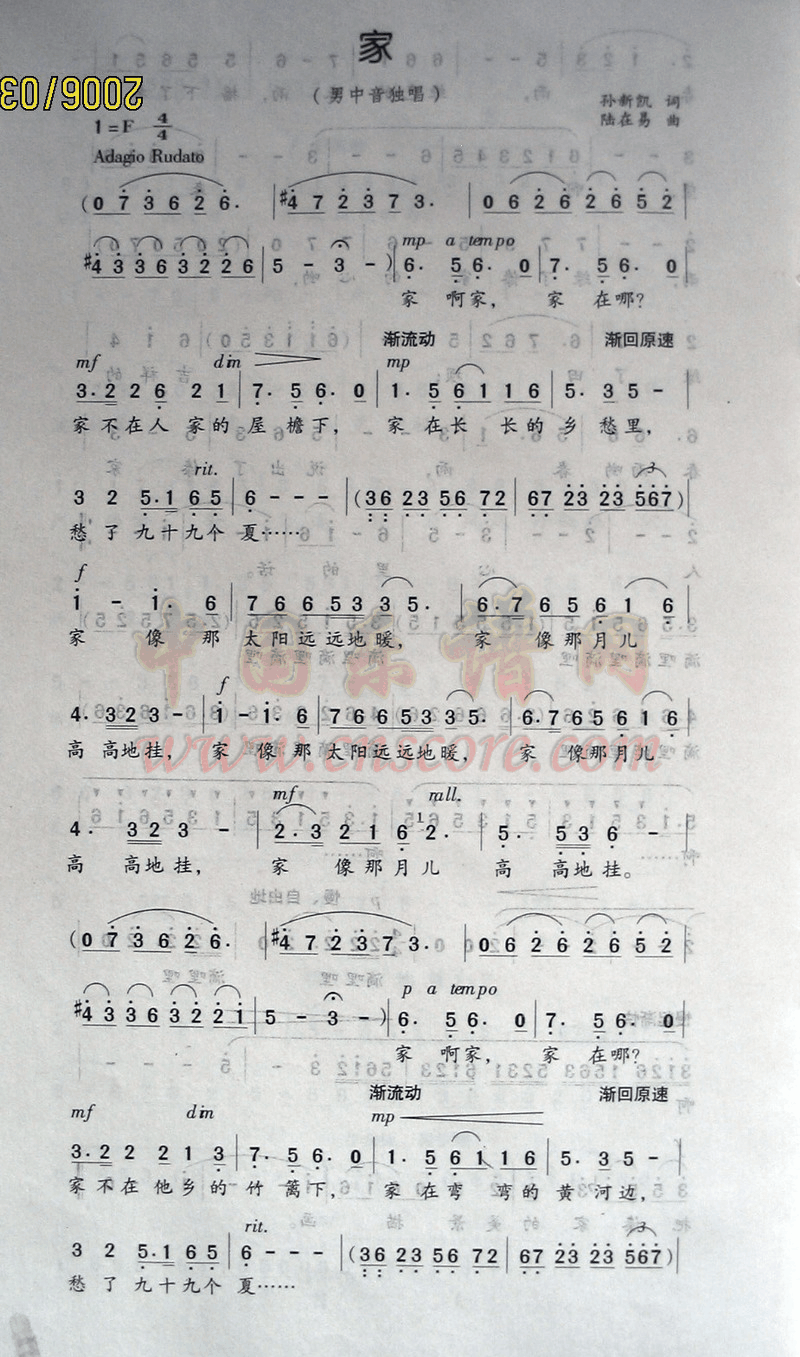 家
2006/03
（男中音独唱）
孙新凯 词
1=F 4/4
陆在易 曲
Adagio Rudato
(0 7 3 6 2 6· | #4 7 2 3 7 3· | 0 6 2 6 2 6 5 2 |
mp a tempo
#4 3 3 6 3 2 2 6 | 5 - 3 - ) | 6· 5 6· 0 | 7· 5 6· 0 |
家 啊家， 家 在哪？
渐流动 渐回原速
mf dim mp
3· 2 2 2 6 2 1 | 7· 5 6· 0 | 1· 5 6 1 1 6 | 5· 3 5 - |
家不在人 家的屋 檐下， 家 在长 长的乡 愁里，
rit. 3
3 2 5·1 6 5 | 6 - - - | (36 23 56 72 | 67 23 23 567) |
愁了九十九个夏……
f
1 - 1· 6 | 7 6 6 5 3 3 5· | 6·7 6 5 6 1 6 |
家 像那 太阳远远地暖， 家 像那月儿
f
4· 3 2 3 - | 1 - 1· 6 | 7 6 6 5 3 3 5· | 6·7 6 5 6 1 6 |
高 高地挂， 家 像那 太阳远远地暖， 家 像那月儿
mf rall.
4· 3 2 3 - | 2·3 2 1 6 1 2· | 5· 5 3 6 - |
高 高地挂， 家 像那月儿 高 高地挂。
(0 7 3 6 2 6· | #4 7 2 3 7 3· | 0 6 2 6 2 6 5 2 |
p a tempo
#4 3 3 6 3 2 2 1 | 5 - 3 - ) | 6· 5 6· 0 | 7· 5 6· 0 |
家 啊家， 家 在哪？
渐流动 渐回原速
mf dim mp
3· 2 2 2 1 3 | 7· 5 6· 0 | 1· 5 6 1 1 6 | 5· 3 5 - |
家不在他乡的竹 篱下， 家 在弯 弯的黄 河边，
rit. 3
3 2 5·1 6 5 | 6 - - - | (36 23 56 72 | 67 23 23 567) |
愁了九十九个夏……
中国乐谱网
www.cnscore.com